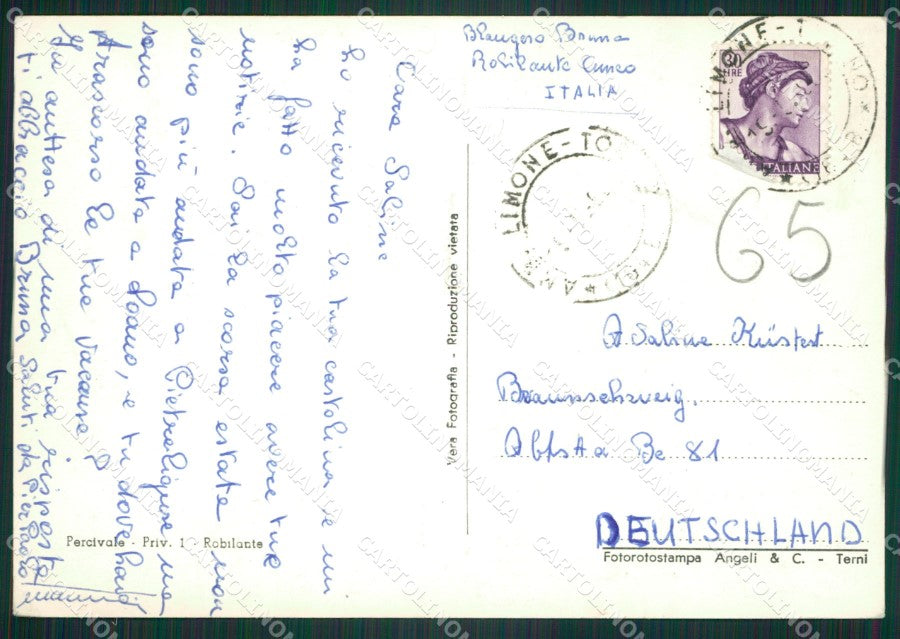 Cara Sabine
ho ricevuto la tua cartolina e mi
ha fatto molto piacere avere tue
notizie. Sai la scorsa estate non
sono più andata a Pietraligure ma
sono andata a Loano, e tu dove hai
trascorso le tue vacanze?
In attesa di una tua risposta
ti abbraccio Bruna saluti da Pier Paolo
Percivale - Priv. 1 - Robilante
Vera Fotografia - Riproduzione vietata
Bruna
Robilante Cuneo
ITALIA
30
LIRE
ITALIANE
LIMONE-TO
LIMONE-T
65
Sabine Küstert
Braunschweig.
Be 81
DEUTSCHLAND
Fotorotostampa Angeli & C. - Terni
CARTOLINOMANIA